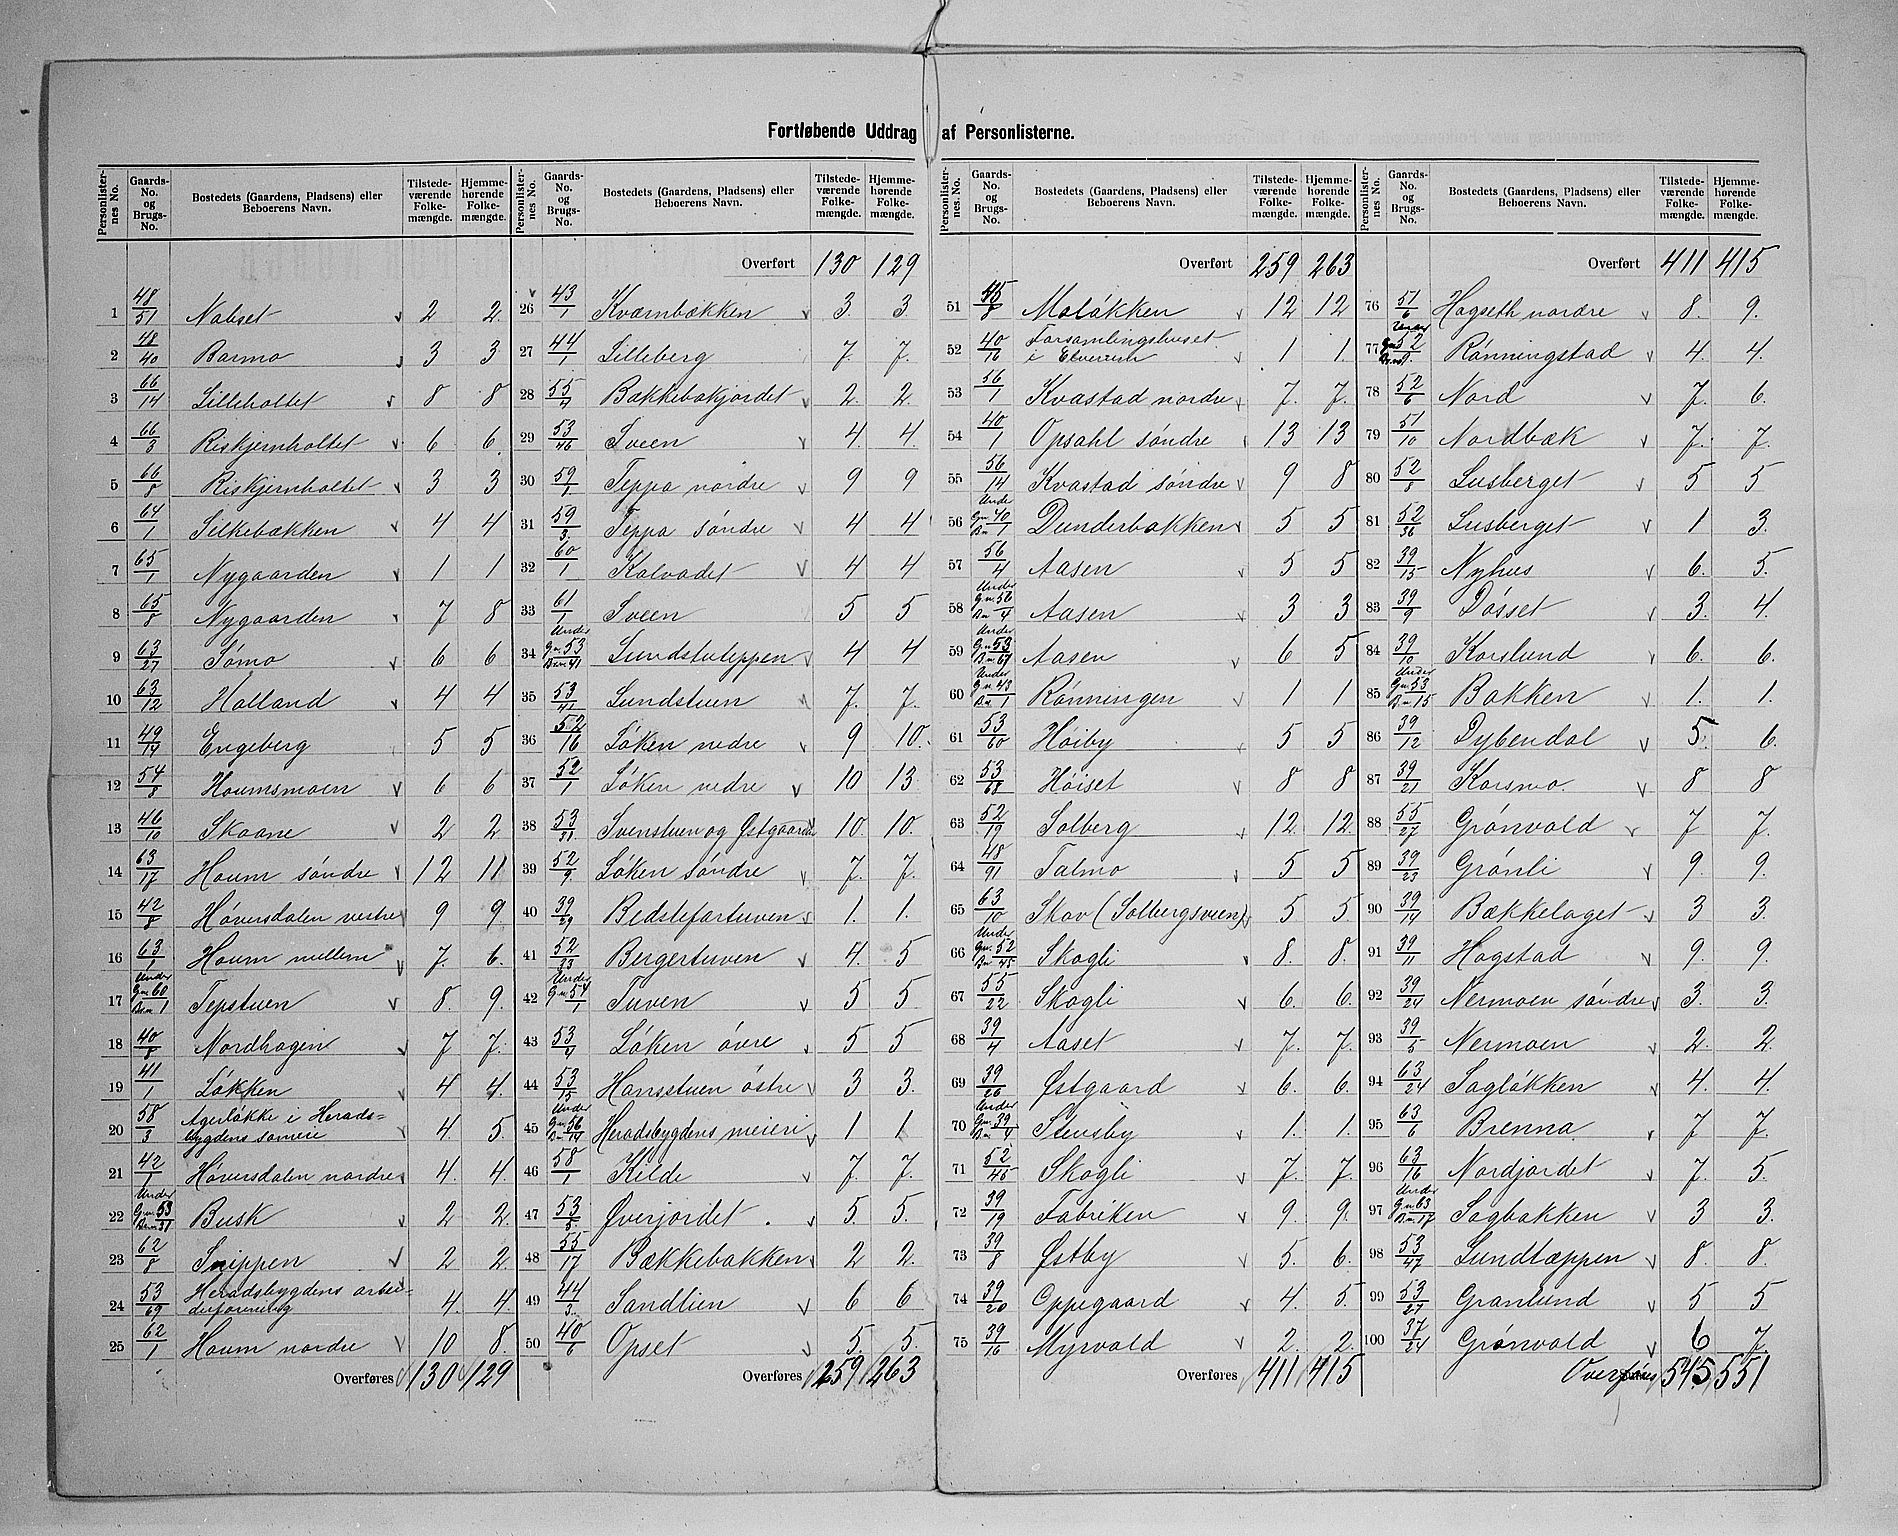 Fortløbende Uddrag af Personlisterne.
Personlisternes No. | Gaards-No. og Brugs-No. | Bostedets (Gaardens, Pladsens) eller Beboerens Navn. | Tilstedeværende Folkemængde. | Hjemmehørende Folkemængde.
1 48/51 Nabset 2 2
2 48/40 Barmo 3 3
3 66/14 Lilleholtet 8 8
4 66/3 Riskjernholtet 6 6
5 66/8 Riskjernholtet 3 3
6 64/1 Silkebækken 4 4
7 65/1 Nygaarden 1 1
8 65/8 Nygaarden 7 8
9 63/27 Sømo 6 6
10 63/12 Holland 4 4
11 49/14 Engeberg 5 5
12 54/8 Houmsmoen 6 6
13 46/10 Skaane 2 2
14 63/17 Houm søndre 12 11
15 42/8 Høversdalen vestre 9 9
16 63/1 Houm mellem 7 6
17 Under G.n. 60 Br.n. 1 Tepstuen 8 9
18 40/8 Nordhagen 7 7
19 41/1 Løkken 4 4
20 58/3 Agerløkke i Herads-
bygdens sameie 4 5
21 42/1 Høversdalen nordre 4 4
22 Under G.n. 53 Br.n. 31 Busk 2 2
23 62/8 Snippen 2 2
24 53/69 Heradsbygdens arbei-
derforening 4 4
25 62/1 Houm nordre 10 8
Overføres 130 129
Personlisternes No. | Gaards-No. og Brugs-No. | Bostedets (Gaardens, Pladsens) eller Beboerens Navn. | Tilstedeværende Folkemængde. | Hjemmehørende Folkemængde.
Overført 130 129
26 43/1 Kværnbækken 3 3
27 44/1 Lilleberg 7 7
28 55/4 Bakkebakjordet 2 2
29 53/46 Sveen 4 4
30 59/1 Teppa nordre 9 9
31 59/3 Teppa søndre 4 4
32 60/1 Kalvadet 4 4
33 61/1 Sveen 5 5
34 Under G.n. 53 Br.n. 41 Lundstuteppen 4 4
35 53/41 Lundstuen 7 7
36 52/16 Løken nedre 9 10
37 52/1 Løken nedre 10 13
38 53/31 Svenstuen og Østgaarden 10 10
39 52/9 Løken søndre 7 7
40 39/29 Bedstefartuven 1 1
41 52/33 Bergertuven 4 5
42 Under G.n. 54/1 Tuven 5 5
43 53/4 Løken øvre 5 5
44 53/15 Hansstuen østre 3 3
45 Under G.n. 56 Br.n. 14 Heradsbygdens meieri 1 1
46 58/1 Kilde 7 7
47 53/5 Øverjordet 5 5
48 55/17 Bækkebakken 2 2
49 44/3 Sandlien 6 6
50 40/6 Opset 5 5
Overføres 259 263
Personlisternes No. | Gaards-No. og Brugs-No. | Bostedets (Gaardens, Pladsens) eller Beboerens Navn. | Tilstedeværende Folkemængde. | Hjemmehørende Folkemængde.
Overført 259 263
51 45/8 Moløkken 12 12
52 40/16 Forsamlingshuset
i Elverum 1 1
53 56/1 Kvastad nordre 7 7
54 40/1 Opsahl søndre 13 13
55 56/14 Kvastad søndre 9 8
56 Under G.n. 40 B.n. 1 Dunderbakken 5 5
57 56/4 Aasen 5 5
58 Under G.n. 56 B.n. 4 Aasen 3 3
59 Under G.n. 53 B.n. 67 Aasen 6 5
60 Under G.n. 43 B.n. 1 Rønningen 1 1
61 53/60 Høiby 5 5
62 53/68 Høiset 8 8
63 52/19 Solberg 12 12
64 48/91 Talmo 5 5
65 63/10 Skov (Solbergsveen) 5 5
66 Under G.n. 52 B.n. 45 Skogli 8 8
67 55/22 Skogli 6 6
68 39/4 Aaset 7 7
69 39/26 Østgaard 6 6
70 Under G.n. 39 B.n. 4 Stensby 1 1
71 52/45 Skogli 7 7
72 39/19 Fabriken 9 9
73 39/8 Østby 5 6
74 39/20 Oppegaard 4 5
75 39/16 Myrvold 2 2
Overføres 411 415
Personlisternes No. | Gaards-No. og Brugs-No. | Bostedets (Gaardens, Pladsens) eller Beboerens Navn. | Tilstedeværende Folkemængde. | Hjemmehørende Folkemængde.
Overført 411 415
76 51/6 Hagseth nordre 8 9
77 Under G.n. 52 Br.n. 9 Rønningstad 4 4
78 52/6 Nord 7 6
79 51/10 Nordbæk 7 7
80 52/8 Lusberget 5 5
81 52/36 Lusberget 1 3
82 39/15 Nyhus 6 5
83 39/9 Døsset 3 4
84 39/10 Korslund 6 6
85 Under G.n. 53 B.n. 15 Bakken 1 1
86 39/12 Dybendal 5 6
87 39/21 Korsmo 8 8
88 55/27 Grønvold 7 7
89 39/23 Grønli 9 9
90 39/14 Bækkelaget 3 3
91 39/11 Hagstad 9 9
92 39/24 Nermoen søndre 3 3
93 39/5 Nermoen 2 2
94 63/24 Sagløkken 4 4
95 63/6 Brenna 7 7
96 63/16 Nordjordet 7 5
97 Under G.n. 63 B.n. 17 Sagbakken 3 3
98 53/47 Lundtæppen 8 8
99 53/27 Granlund 5 5
100 37/24 Grønvold 6 7
Overføres 545 551